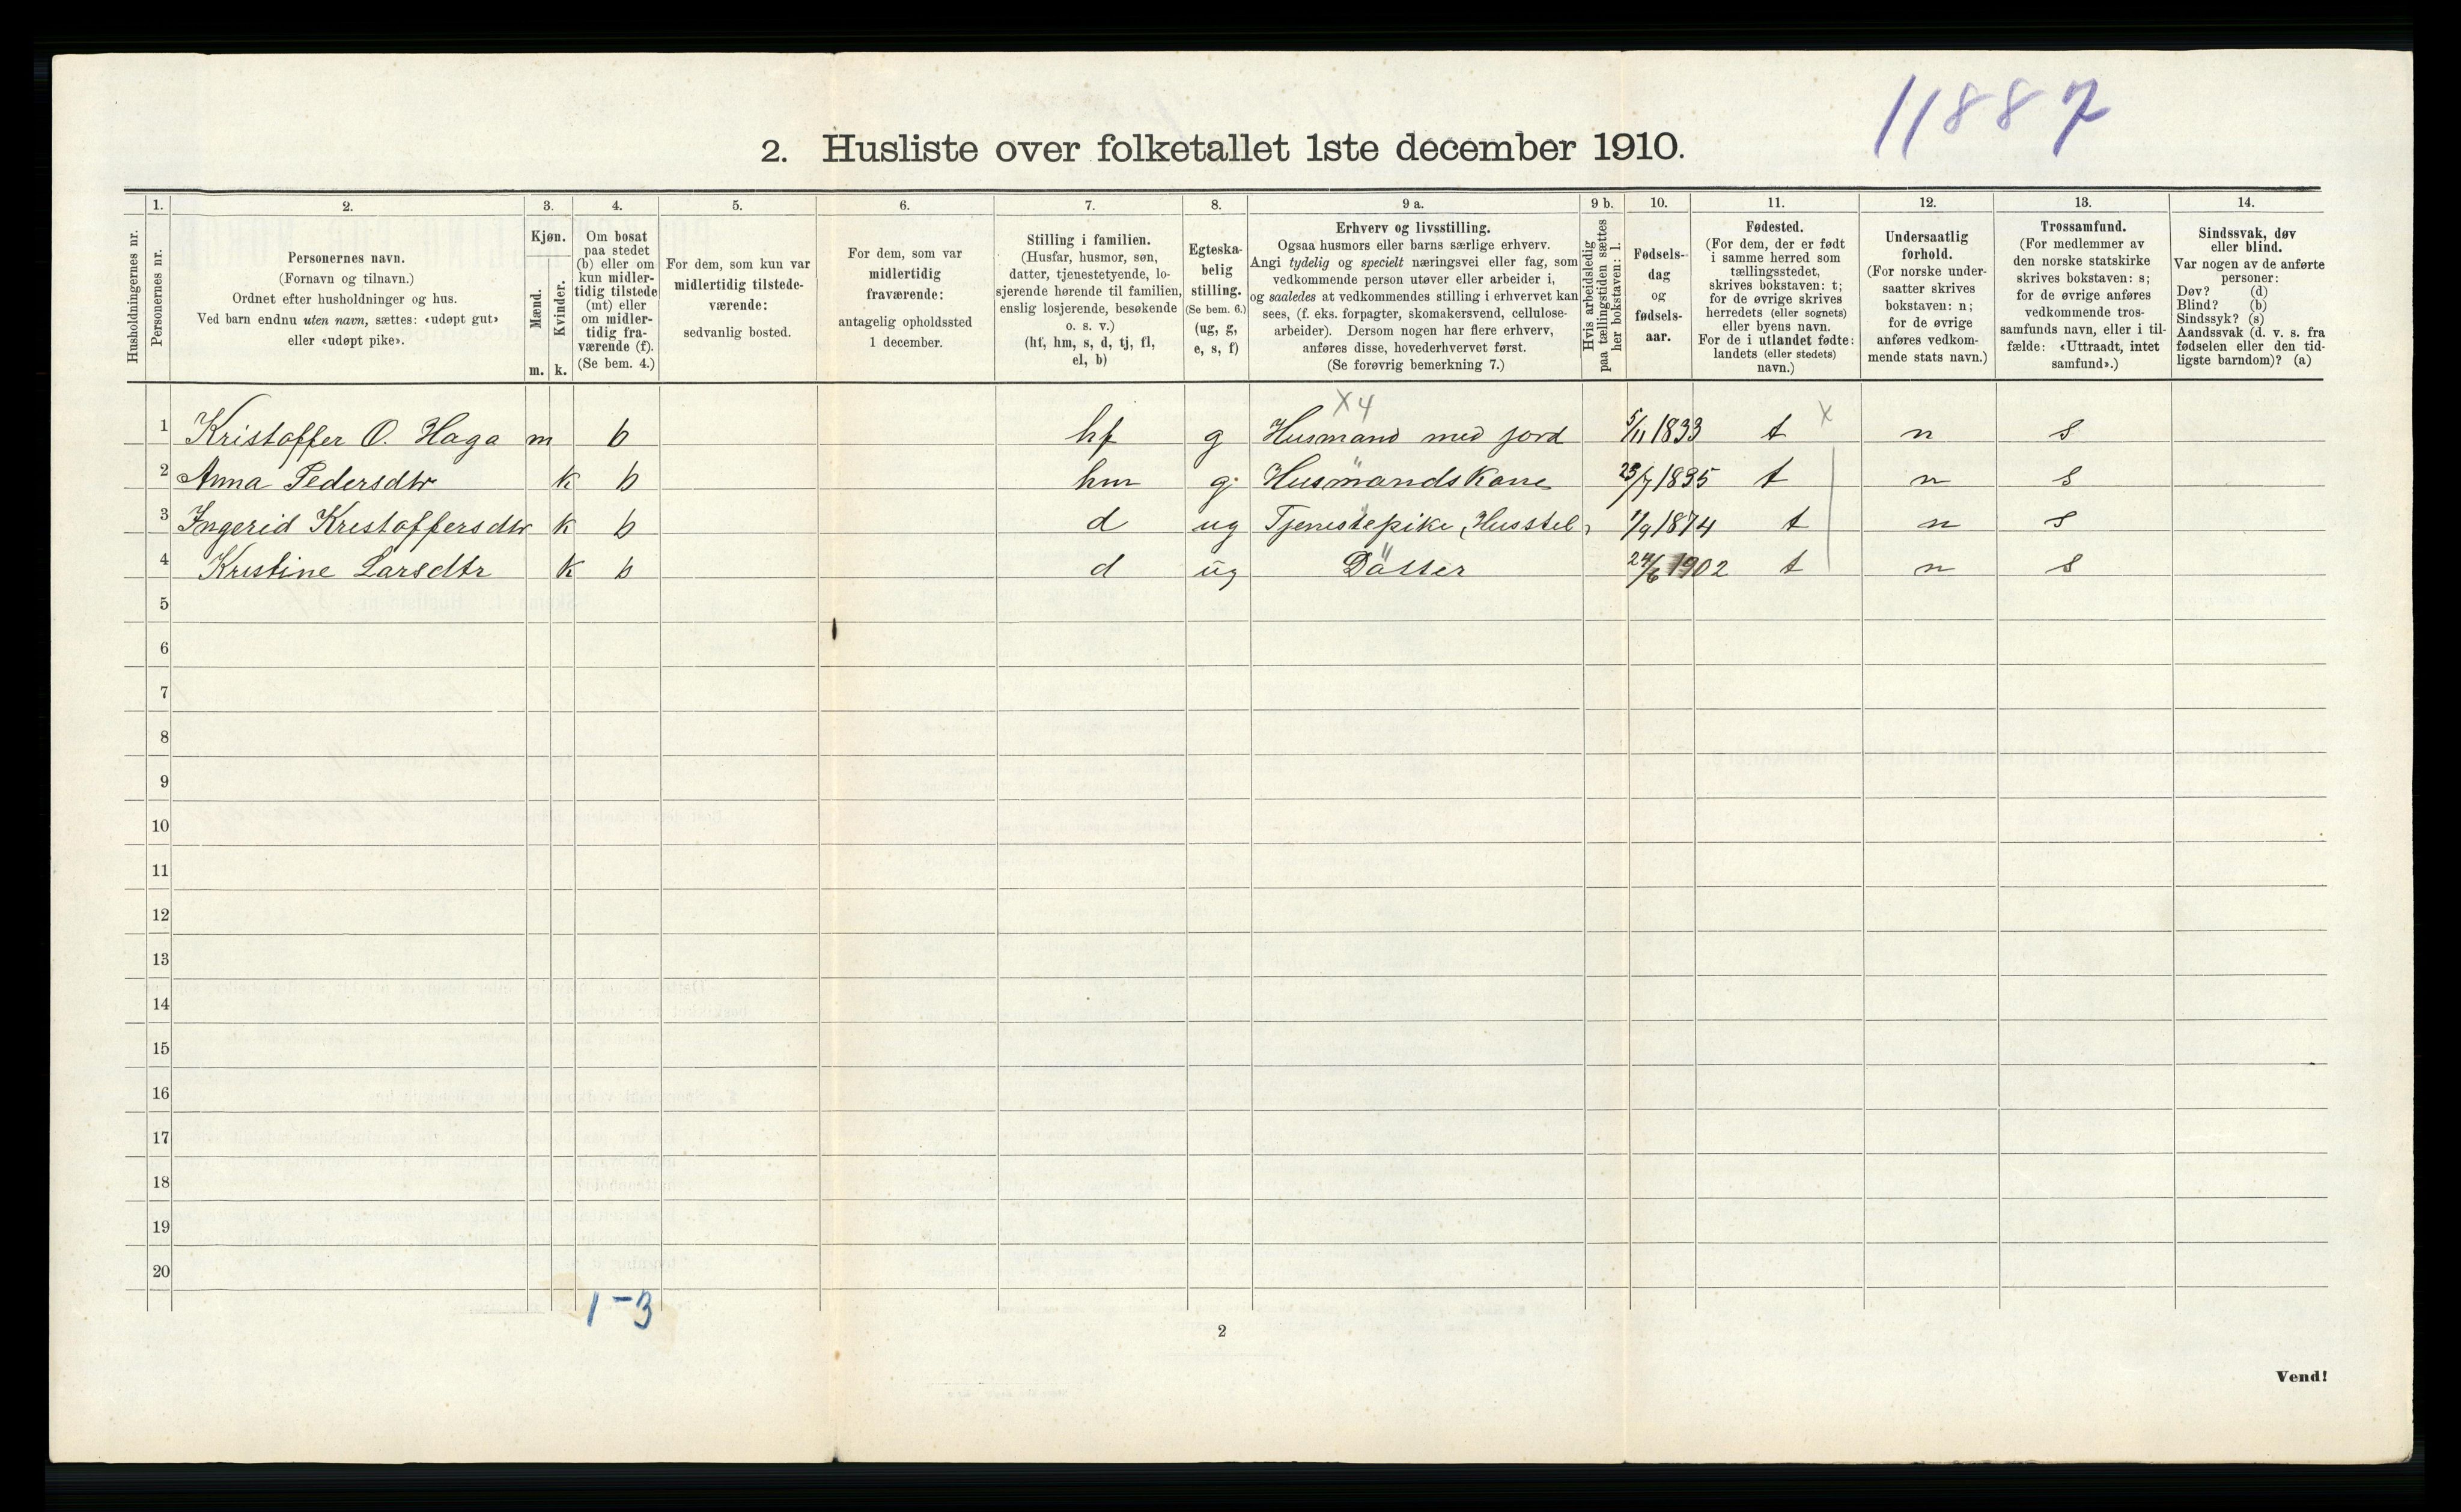 11887
2. Husliste over folketallet 1ste december 1910.
Husholdningernes nr.
1. 2. 3. 4. 5. 6. 7. 8. 9 a. 9 b. 10. 11. 12. 13. 14.
Personernes nr.
Personernes navn.
(Fornavn og tilnavn.)
Ordnet efter husholdninger og hus.
Ved barn endnu uten navn, sættes: «udøpt gut»
eller «udøpt pike».
Kjøn.
Mænd.
Kvinder.
m. k.
Om bosat
paa stedet
(b) eller om
kun midler-
tidig tilstede
(mt) eller
om midler-
tidig fra-
værende (f).
(Se bem. 4.)
For dem, som kun var
midlertidig tilstede-
værende:
sedvanlig bosted.
For dem, som var
midlertidig
fraværende:
antagelig opholdssted
1 december.
Stilling i familien.
(Husfar, husmor, søn,
datter, tjenestetyende, lo-
sjerende hørende til familien,
enslig losjerende, besøkende
o. s. v.)
(hf, hm, s, d, tj, fl,
el, b)
Egteska-
belig
stilling.
(Se bem. 6.)
(ug, g,
e, s, f)
Erhverv og livsstilling.
Ogsaa husmors eller barns særlige erhverv.
Angi tydelig og specielt næringsvei eller fag, som
vedkommende person utøver eller arbeider i,
og saaledes at vedkommendes stilling i erhvervet kan
sees, (f. eks. forpagter, skomakersvend, cellulose-
arbeider). Dersom nogen har flere erhverv,
anføres disse, hovederhvervet først.
(Se forøvrig bemerkning 7.)
Hvis arbeidsledig
paa tællingstiden sættes
her bokstaven: l.
Fødsels-
dag
og
fødsels-
aar.
Fødested.
(For dem, der er født
i samme herred som
tællingsstedet,
skrives bokstaven: t;
for de øvrige skrives
herredets (eller sognets)
eller byens navn.
For de i utlandet fødte:
landets (eller stedets)
navn.)
Undersaatlig
forhold.
(For norske under-
saatter skrives
bokstaven: n;
for de øvrige
anføres vedkom-
mende stats navn.)
Trossamfund.
(For medlemmer av
den norske statskirke
skrives bokstaven: s;
for de øvrige anføres
vedkommende tros-
samfunds navn, eller i til-
fælde: «Uttraadt, intet
samfund».)
Sindssvak, døv
eller blind.
Var nogen av de anførte
personer:
Døv? (d)
Blind? (b)
Sindssyk? (s)
Aandssvak (d. v. s. fra
fødselen eller den tid-
ligste barndom)? (a)
X 4
1 Kristoffer O. Haga m b hf g Husmand med jord 5/11 1833 t x n s
2 Anna Pedersdtr k b hm g. Husmandskone 1835 t n s
3 Ingerid Kristoffersdtr k b d ug Tjenestepike, Husstel 1/9 1874 t n s
4 Kristine Larsdtr k b d ug Datter 24/6 1902 t n s
5
6
7
8
9
10
11
12
13
14
15
16
17
18
19
20
1-3
2
Vend!